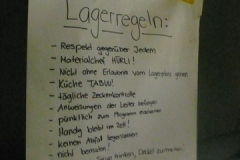 Lagerregeln:
- Respekt gegenüber Jedem
- Materialchef HÜRLI!
- Nicht ohne Erlaubnis vom Lagerplatz gehen
- Küche TABU!
- tägliche Zeckenkontrolle
- Anweisungen der Leiter befolgen
- pünktlich zum Programm erscheinen
- Handy bleibt im Zelt!
- keinen Abfall liegenlassen
- nicht bemalen!